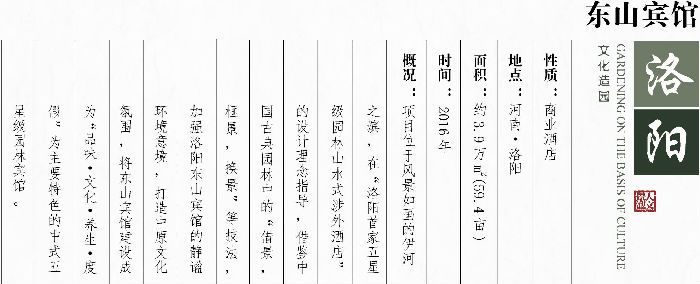 东山宾馆
洛阳
GARDENING ON THE BASIS OF CULTURE
文化造园
性质：商业酒店
地点：河南·洛阳
面积：约3.9万㎡(59.4亩)
时间：2016年
概况：项目位于风景如画的伊河
之滨，在“洛阳首家五星
级园林山水式涉外酒店”
的设计理念指导，借鉴中
国古典园林中的“借景，
框景，换景”等技法，
加强洛阳东山宾馆的静谧
环境意境，打造中原文化
氛围，将东山宾馆建设成
为“品味·文化·养生·度
假”为主要特色的中式五
星级园林宾馆。